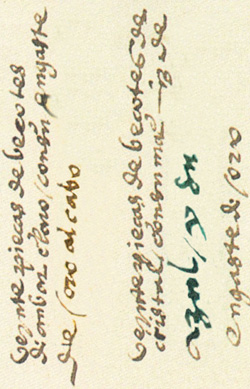 veynte pieças de beçotes
de anbar claro / con su engaste
de / oro al cabo
veynte pieças de beçotes de
cristal / con su
azul / y su
engaste de / oro